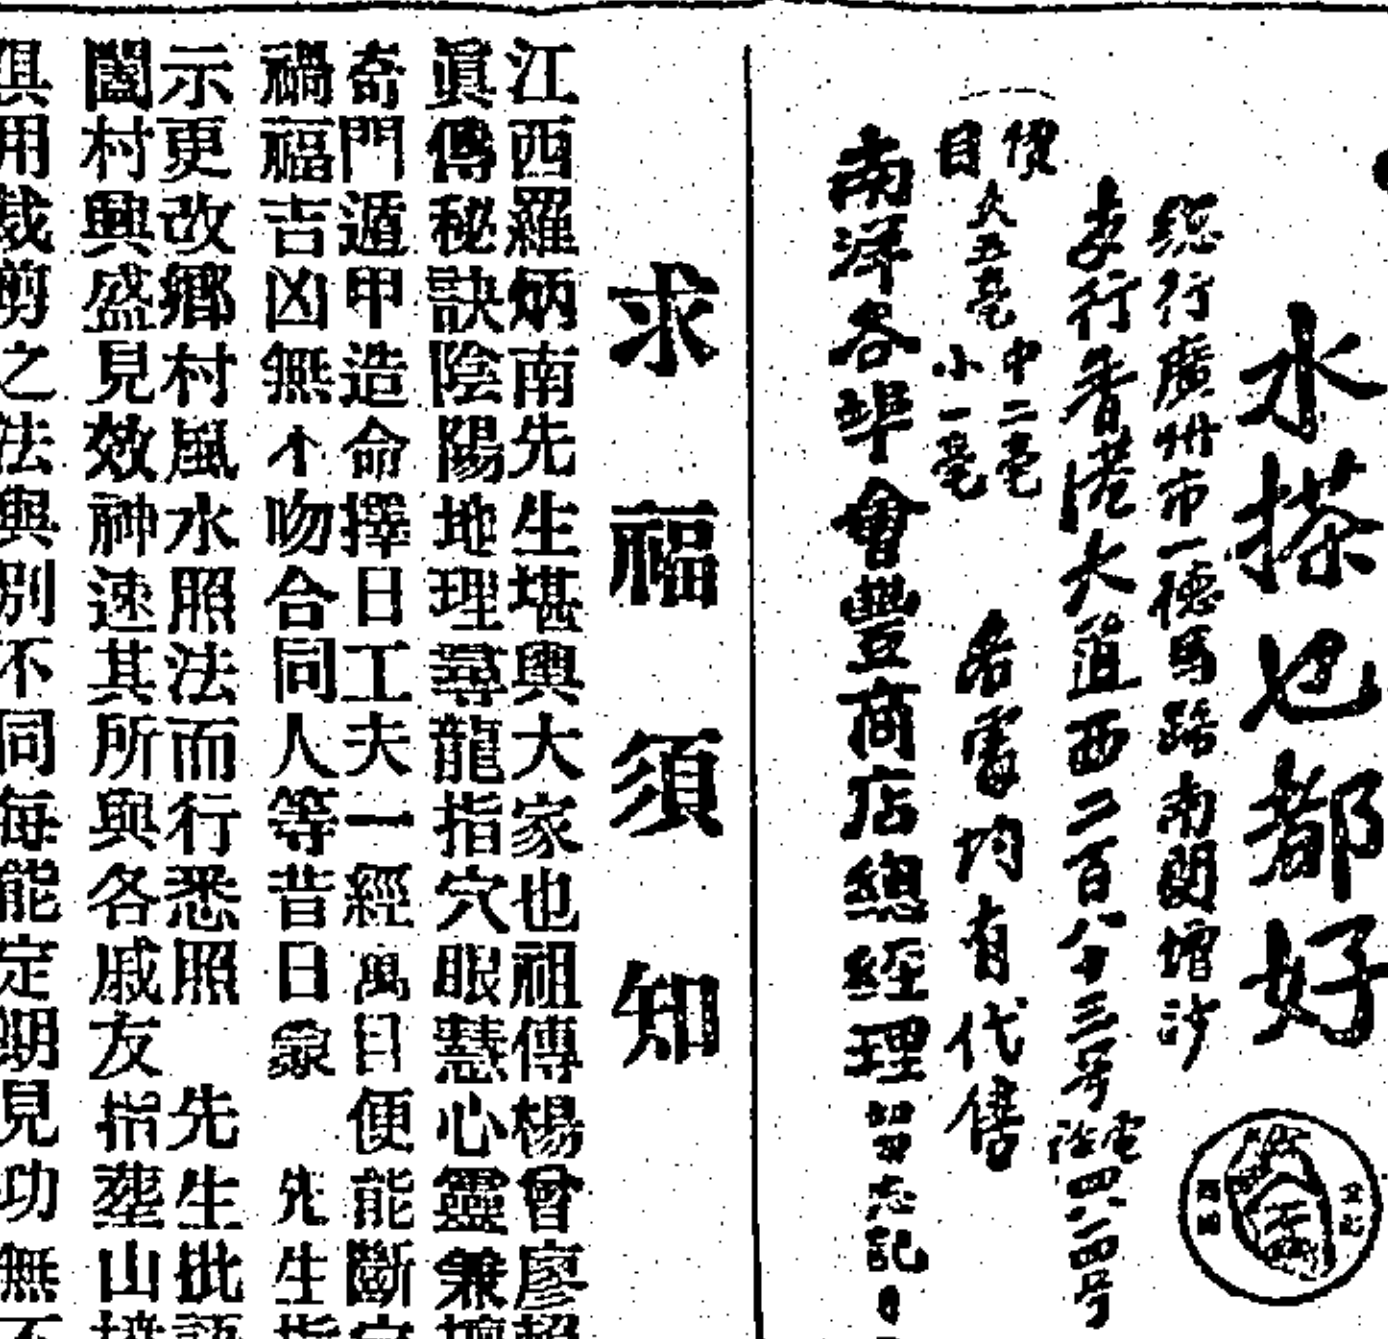 水搽乜都好
總行廣州市一德馬路南關增沙
支行香港大道西二百八十三号
電話四八二四号
價目
大五毫
中二毫
小一毫
各電均有代售
南洋各埠會豐商店總經理
求福須知
江西羅炳南先生堪輿大家也祖傳楊曾廖
眞傳秘訣陰陽地理尋龍指穴眼慧心靈兼
奇門遁甲造命擇日工夫一經萬目便能斷
禍福吉凶無不吻合同人等昔日蒙 先生指
示更改鄉村風水照法而行悉照 先生批
闔村興盛見效神速其所與各戚友指塟山
俱用裁剪之法與別不同每能定期見功無不